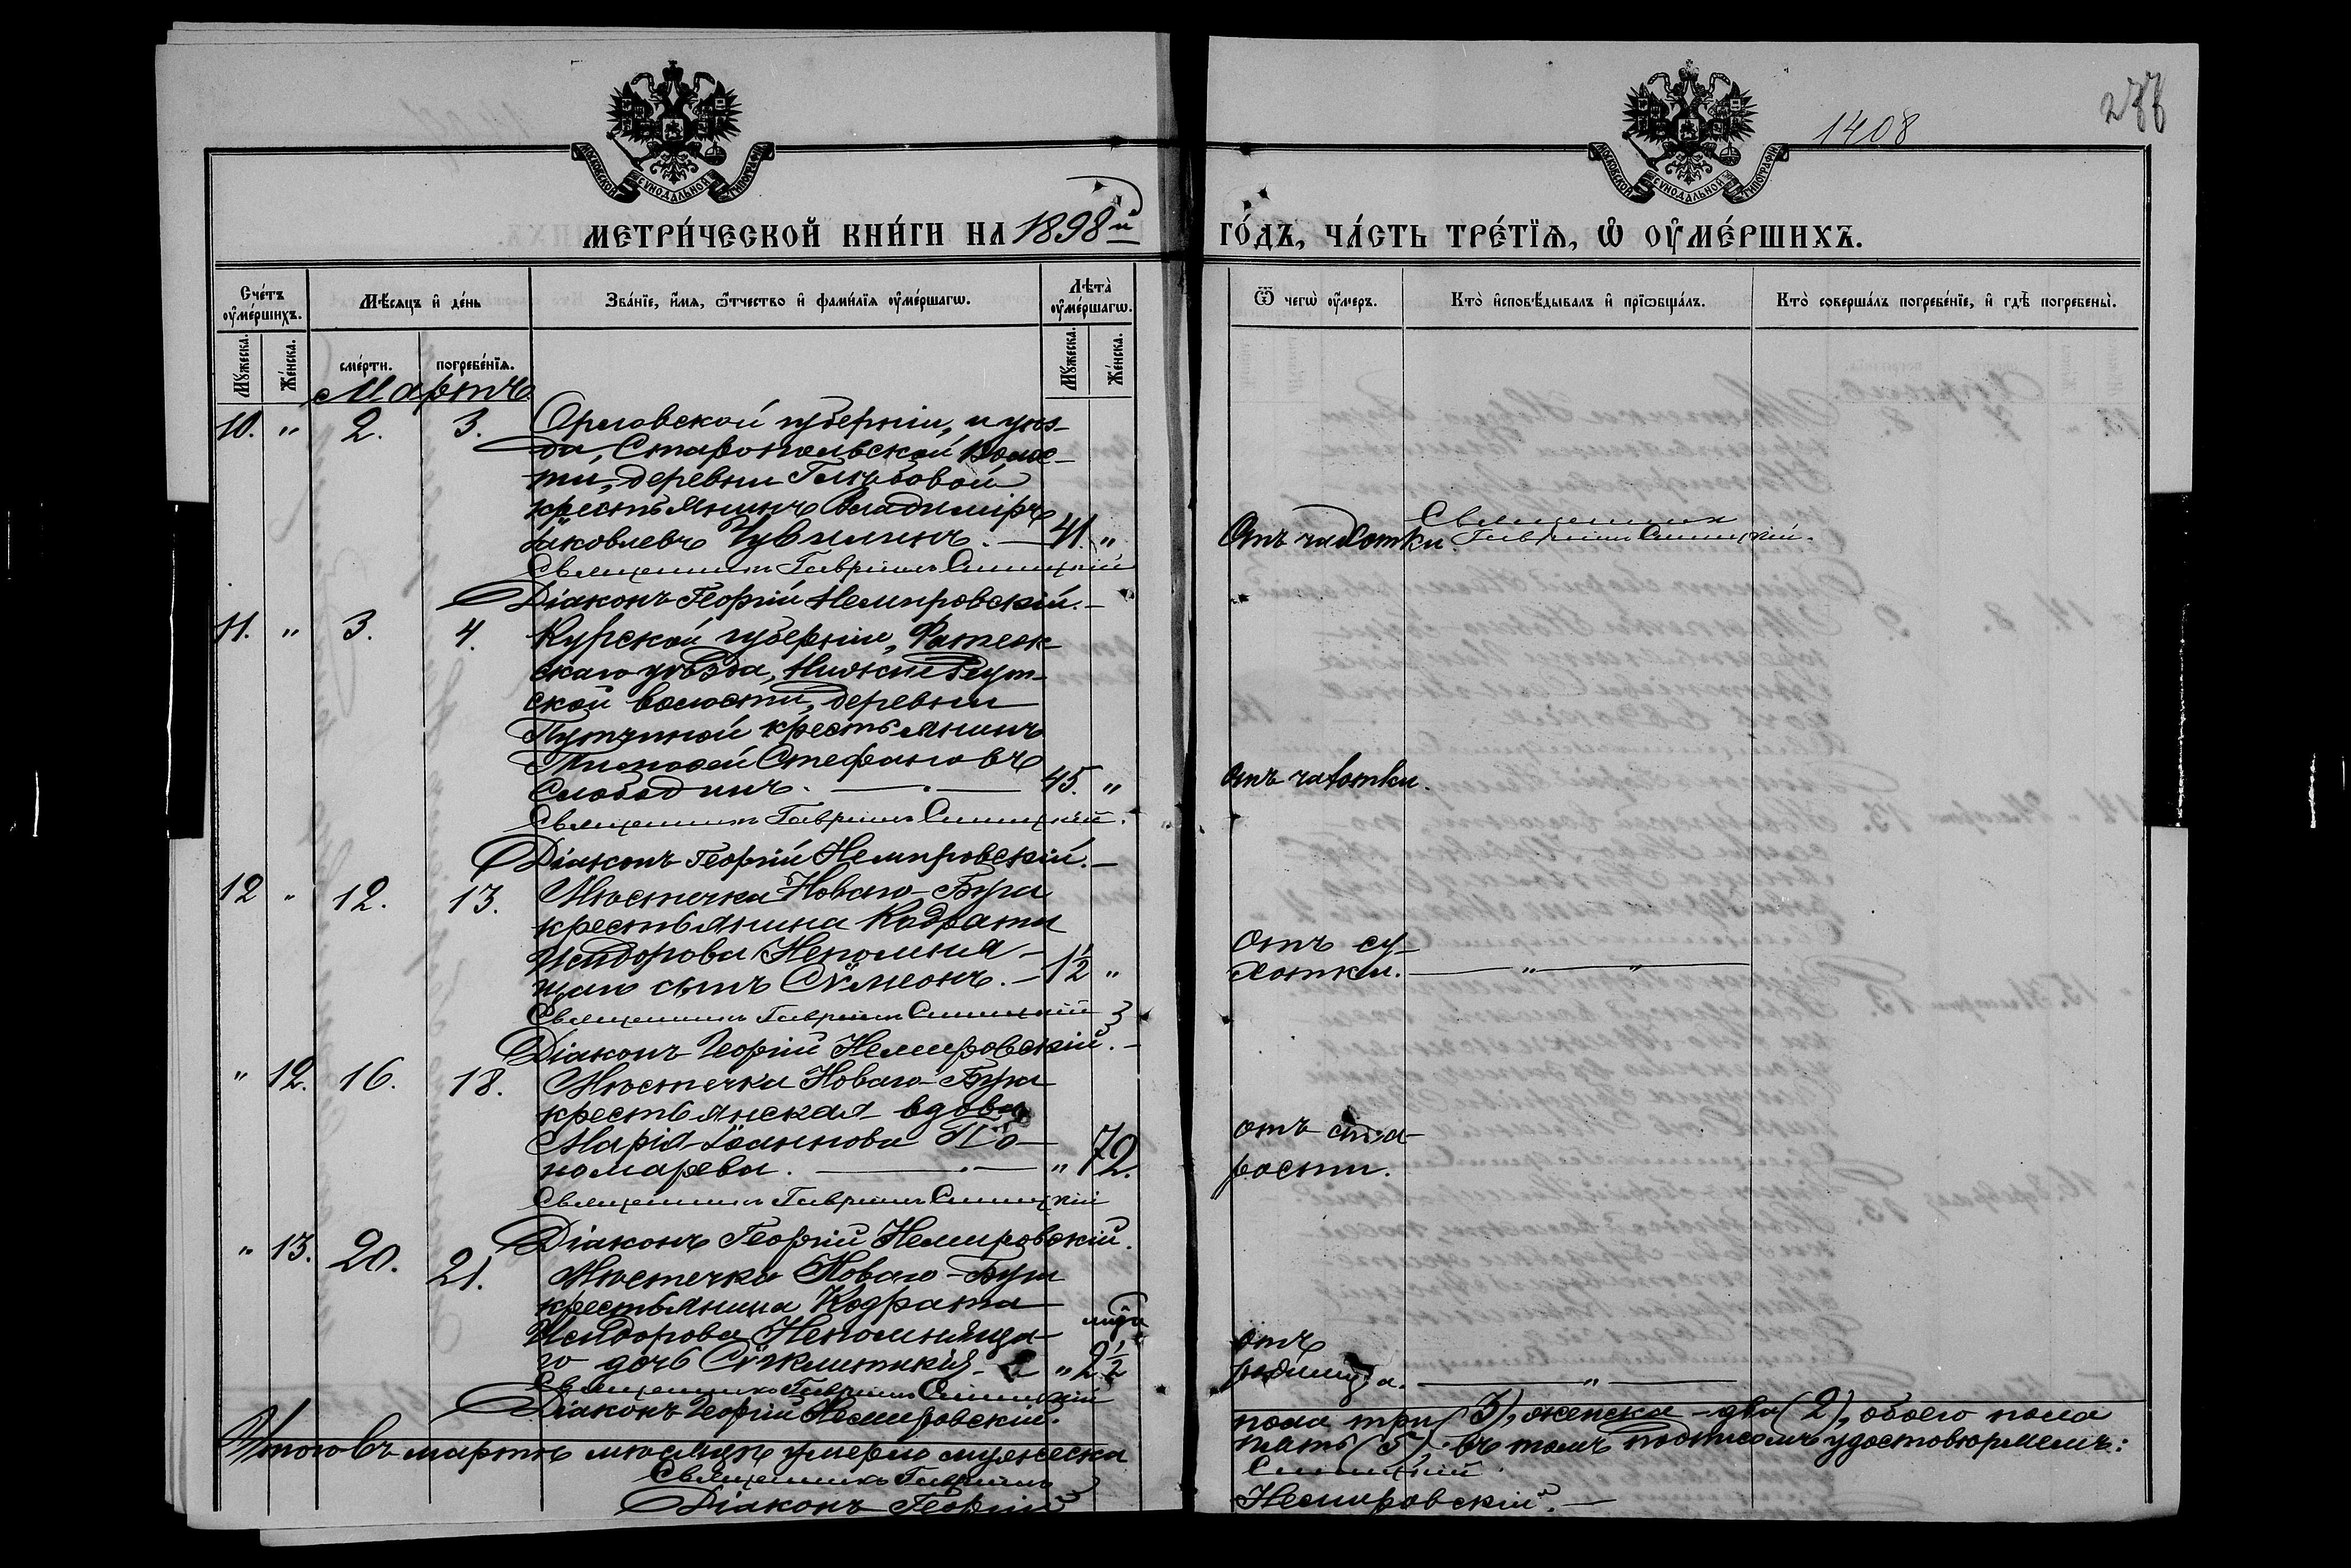 1408
МОСКОВСКОЙ СУНОДАЛЬНОЙ ТИПОГРАФІИ
МОСКОВСКОЙ СУНОДАЛЬНОЙ ТИПОГРАФІИ
МЕТРИ́ЧЕСКОЙ КНИ́ГИ НА 1898й
ГО́ДЪ, ЧА́СТЬ ТРЕ́ТЇѦ, Ѡ ОУ҆МЕ́РШИХЪ.
Сче́тъ оу҆ме́ршихъ.
Мꙋ́жеска. Же́нска.
Мѣ́сяцъ и҆ де́нь
сме́рти. погребе́нїѧ.
Зва́нїе, и҆́мѧ, ѻ҆́тчество и҆ фами́лїѧ оу҆ме́ршагѡ.
Лѣ́та оу҆ме́ршагѡ.
Мꙋ́жеска. Же́нска.
Ѿ чегѡ̀ оу҆́меръ.
Кто̀ и҆сповѣ́дывалъ и҆ прїѡбща́лъ.
Кто̀ соверша́лъ погребе́нїе, и҆ гдѣ̀ погребены̀.
Мартъ
10. " 2. 3. Орловской губерніи, и уѣз-
да, Старопольской Волос-
ти, деревни Глѣбовой
крестьянинъ Владиміръ
Іаковлевъ Чувилинъ. — 41. "
Священникъ Гавріилъ Синицкій
Діаконъ Георгій Немировскій. —
Отъ чахотки.
Священникъ
Гавріилъ Синицкій.
11. " 3. 4. Курской губерніи, Фатеж-
скаго уѣзда, Нижне Реут-
ской волости, деревни
Путчиной крестьянинъ
Тимофей Стефановъ
Слободинъ. — 45. "
Священникъ Гавріилъ Синицкій.
Діаконъ Георгій Немировскій. —
Отъ чахотки.
12 " 12. 13. Мѣстечка Новаго-Буга
крестьянина Кодрата
Исидорова Непомня-
щаго сынъ Сѵмеонъ. — 1½ "
Священникъ Гавріилъ Синицкій
Діаконъ Георгій Немировскій. —
Отъ су-
хотки. — " — " —
" 12. 16. 18. Мѣстечка Новаго-Буга
крестьянская вдова
Марія Іоаннова По-
номарева. — " 72.
Священникъ Гавріилъ Синицкій
Діаконъ Георгій Немировскій.
отъ ста-
рости.
" 13. 20. 21. Мѣстечка Новаго-Буга
крестьянина Кодрата
Исидорова Непомняща-
го дочь Сѵнклитикія — " 2½
Священникъ Гавріилъ Синицкій
Діаконъ Георгій Немировскій.
отъ
родимца. — " —
Итого въ мартѣ мѣсяцѣ умерло мужеска
пола три (3), женска – два (2), обоего пола
пять (5). въ томъ подписомъ удостовѣряемъ:
Священникъ Гавріилъ Синицкій
Діаконъ Георгій Немировскій. —